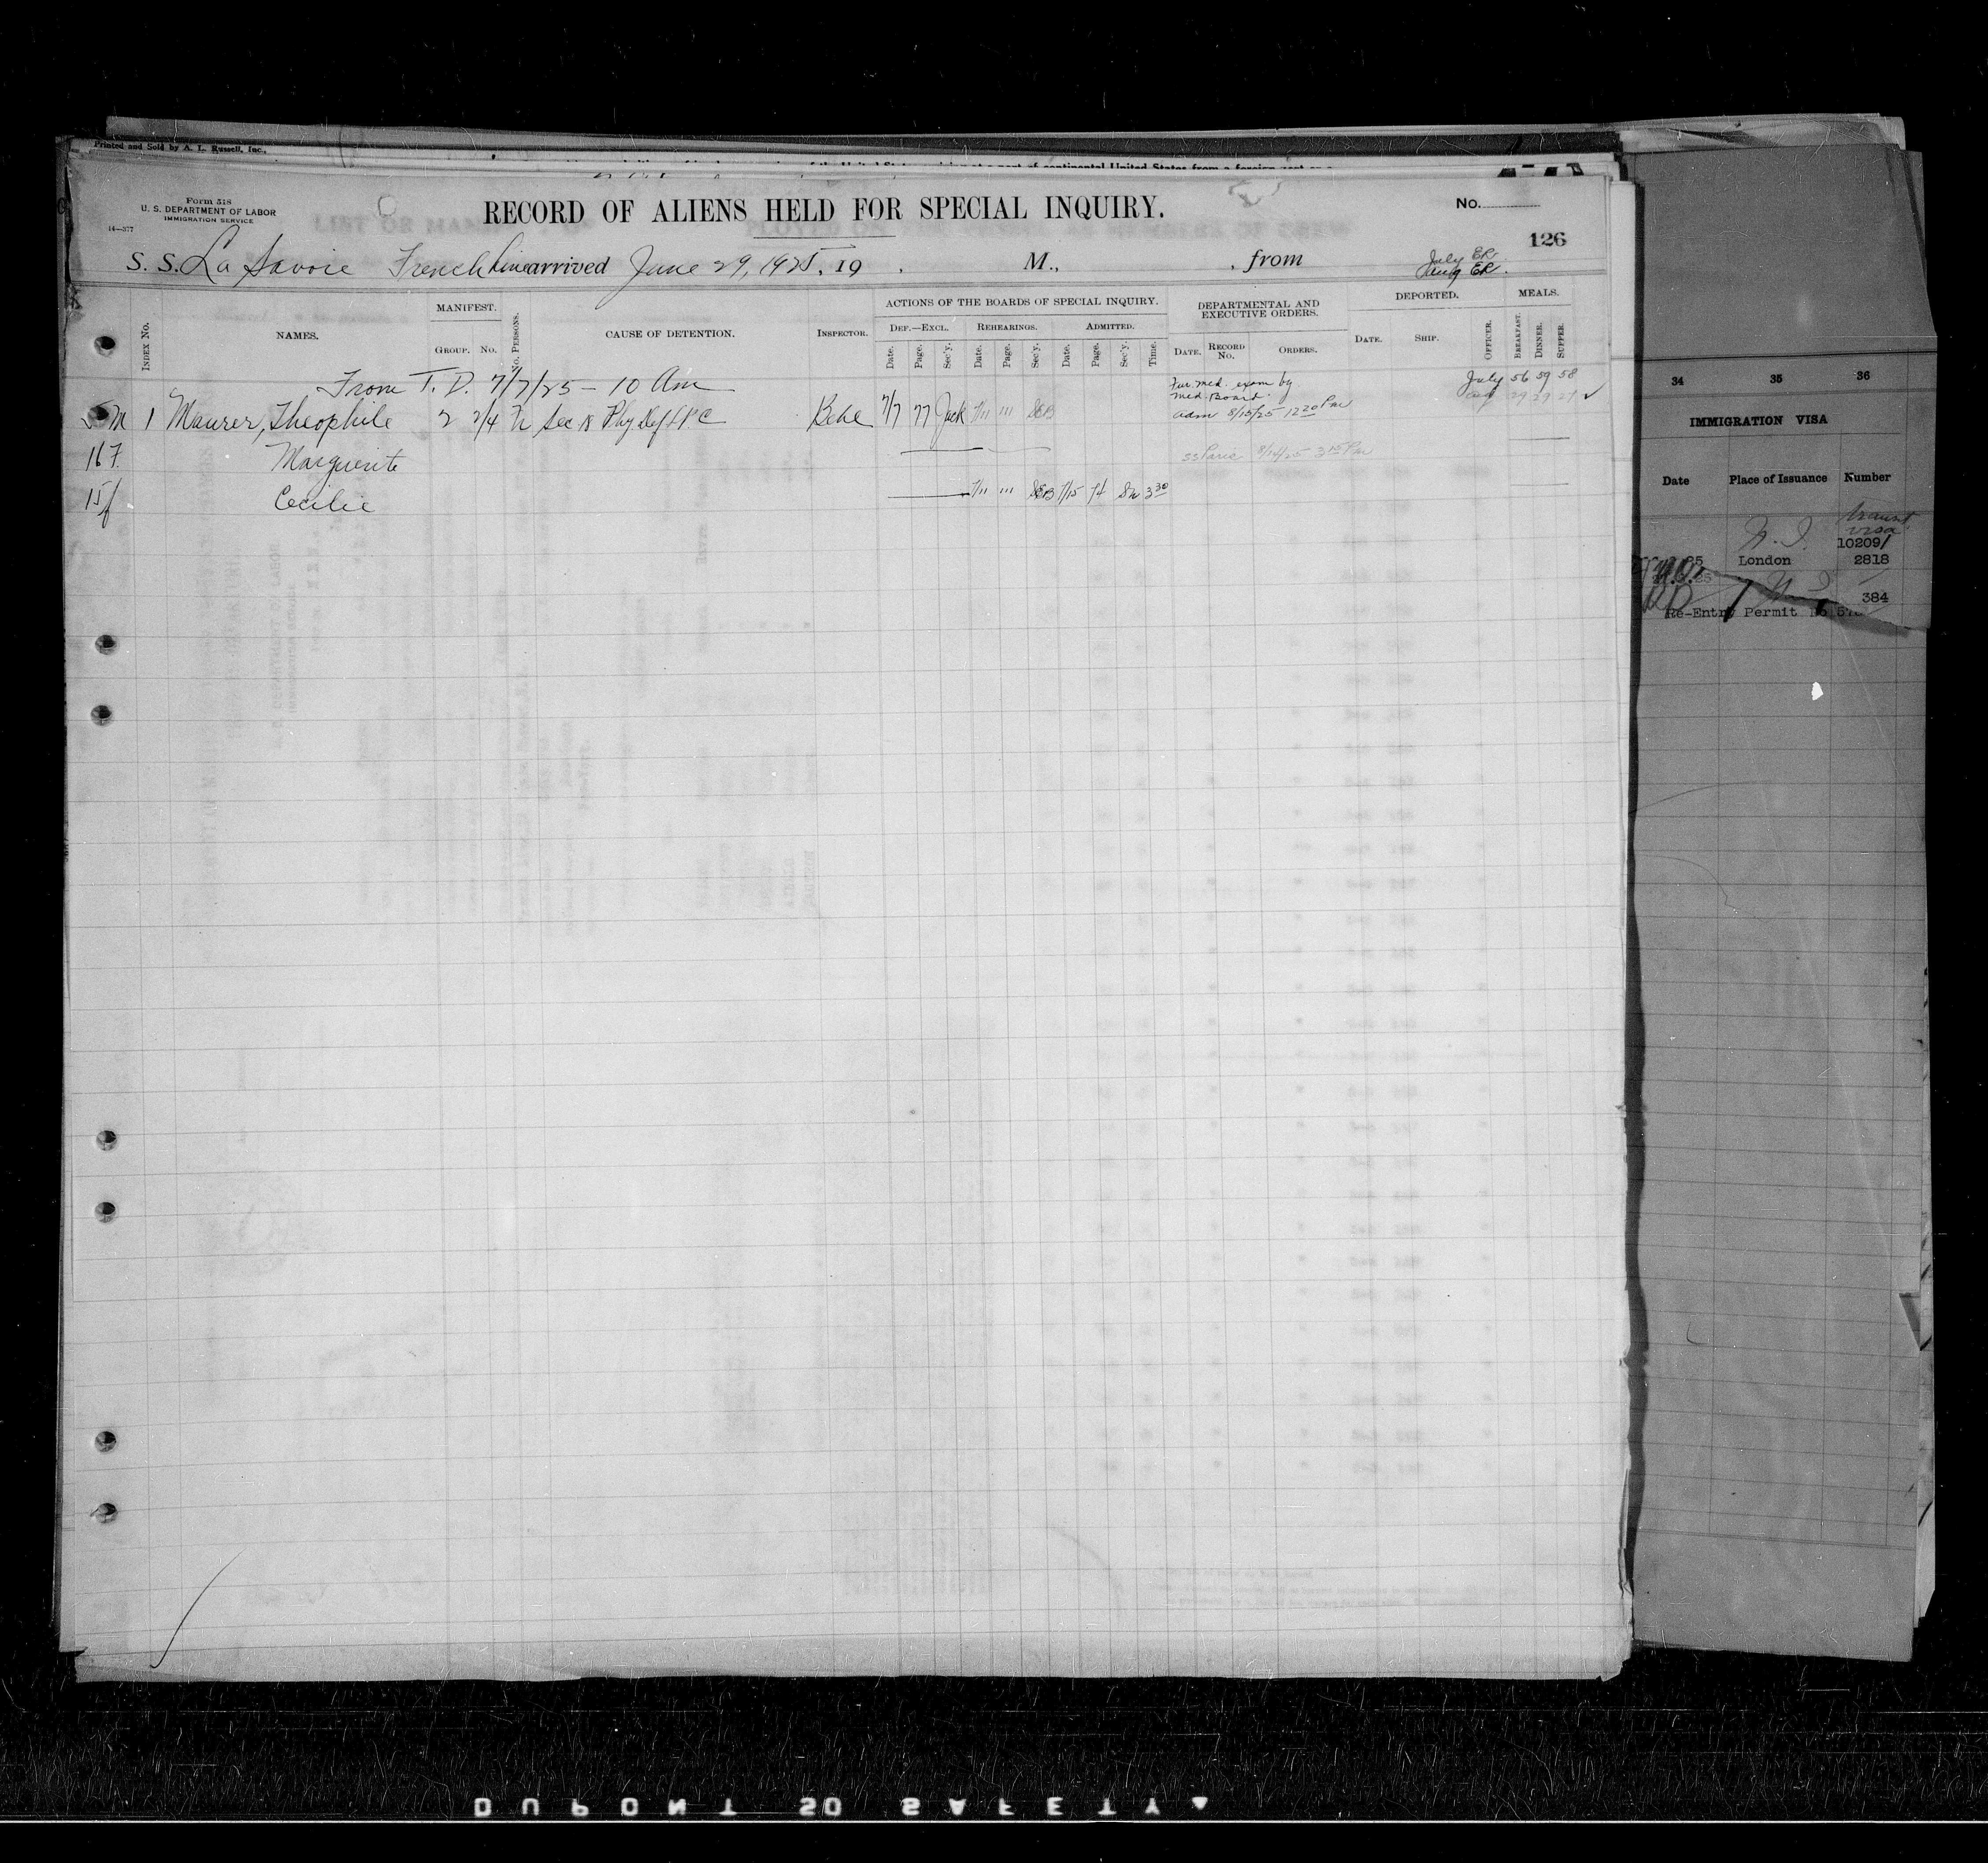 Printed and Sold by A. L. Russell, Inc.,
Form 518
U. S. DEPARTMENT OF LABOR
IMMIGRATION SERVICE
14—377
RECORD OF ALIENS HELD FOR SPECIAL INQUIRY.
No.
126
S. S. La Savoie French Line arrived June 29, 1925, 19 . M., , from
July ER
Aug ER.
INDEX No. NAMES. MANIFEST. GROUP. No. No. PERSONS. CAUSE OF DETENTION. INSPECTOR. ACTIONS OF THE BOARDS OF SPECIAL INQUIRY. DEF.—EXCL. REHEARINGS. ADMITTED. DEPARTMENTAL AND EXECUTIVE ORDERS. DEPORTED. MEALS.
Date. Page. Sec'y. Date. Page. Sec'y. Date. Page. Sec'y. Time. DATE. RECORD No. ORDERS. DATE. SHIP. OFFICER. BREAKFAST. DINNER. SUPPER.
From T. D. 7/7/25 — 10 Am
Fur. med. exam by
Med. Board.
July 56 59 58
Aug 29 29 27 ✓
M 1 Maurer, Theophile 2 2/4 Sec 18 Phy Def LPC 7/7 77 Jack 7/11 111 SEB adm 8/15/25 12 20 Pm
16 F. Marguerite SS Paris 8/14/25 3 15 Pm
15 f Cecilie 7/11 111 SEB 7/15 74 3 30
34 35 36
IMMIGRATION VISA
Date Place of Issuance Number
transit
visa
10209/
London 2818
384
Re-Entry Permit No
DUPONT SAFETY